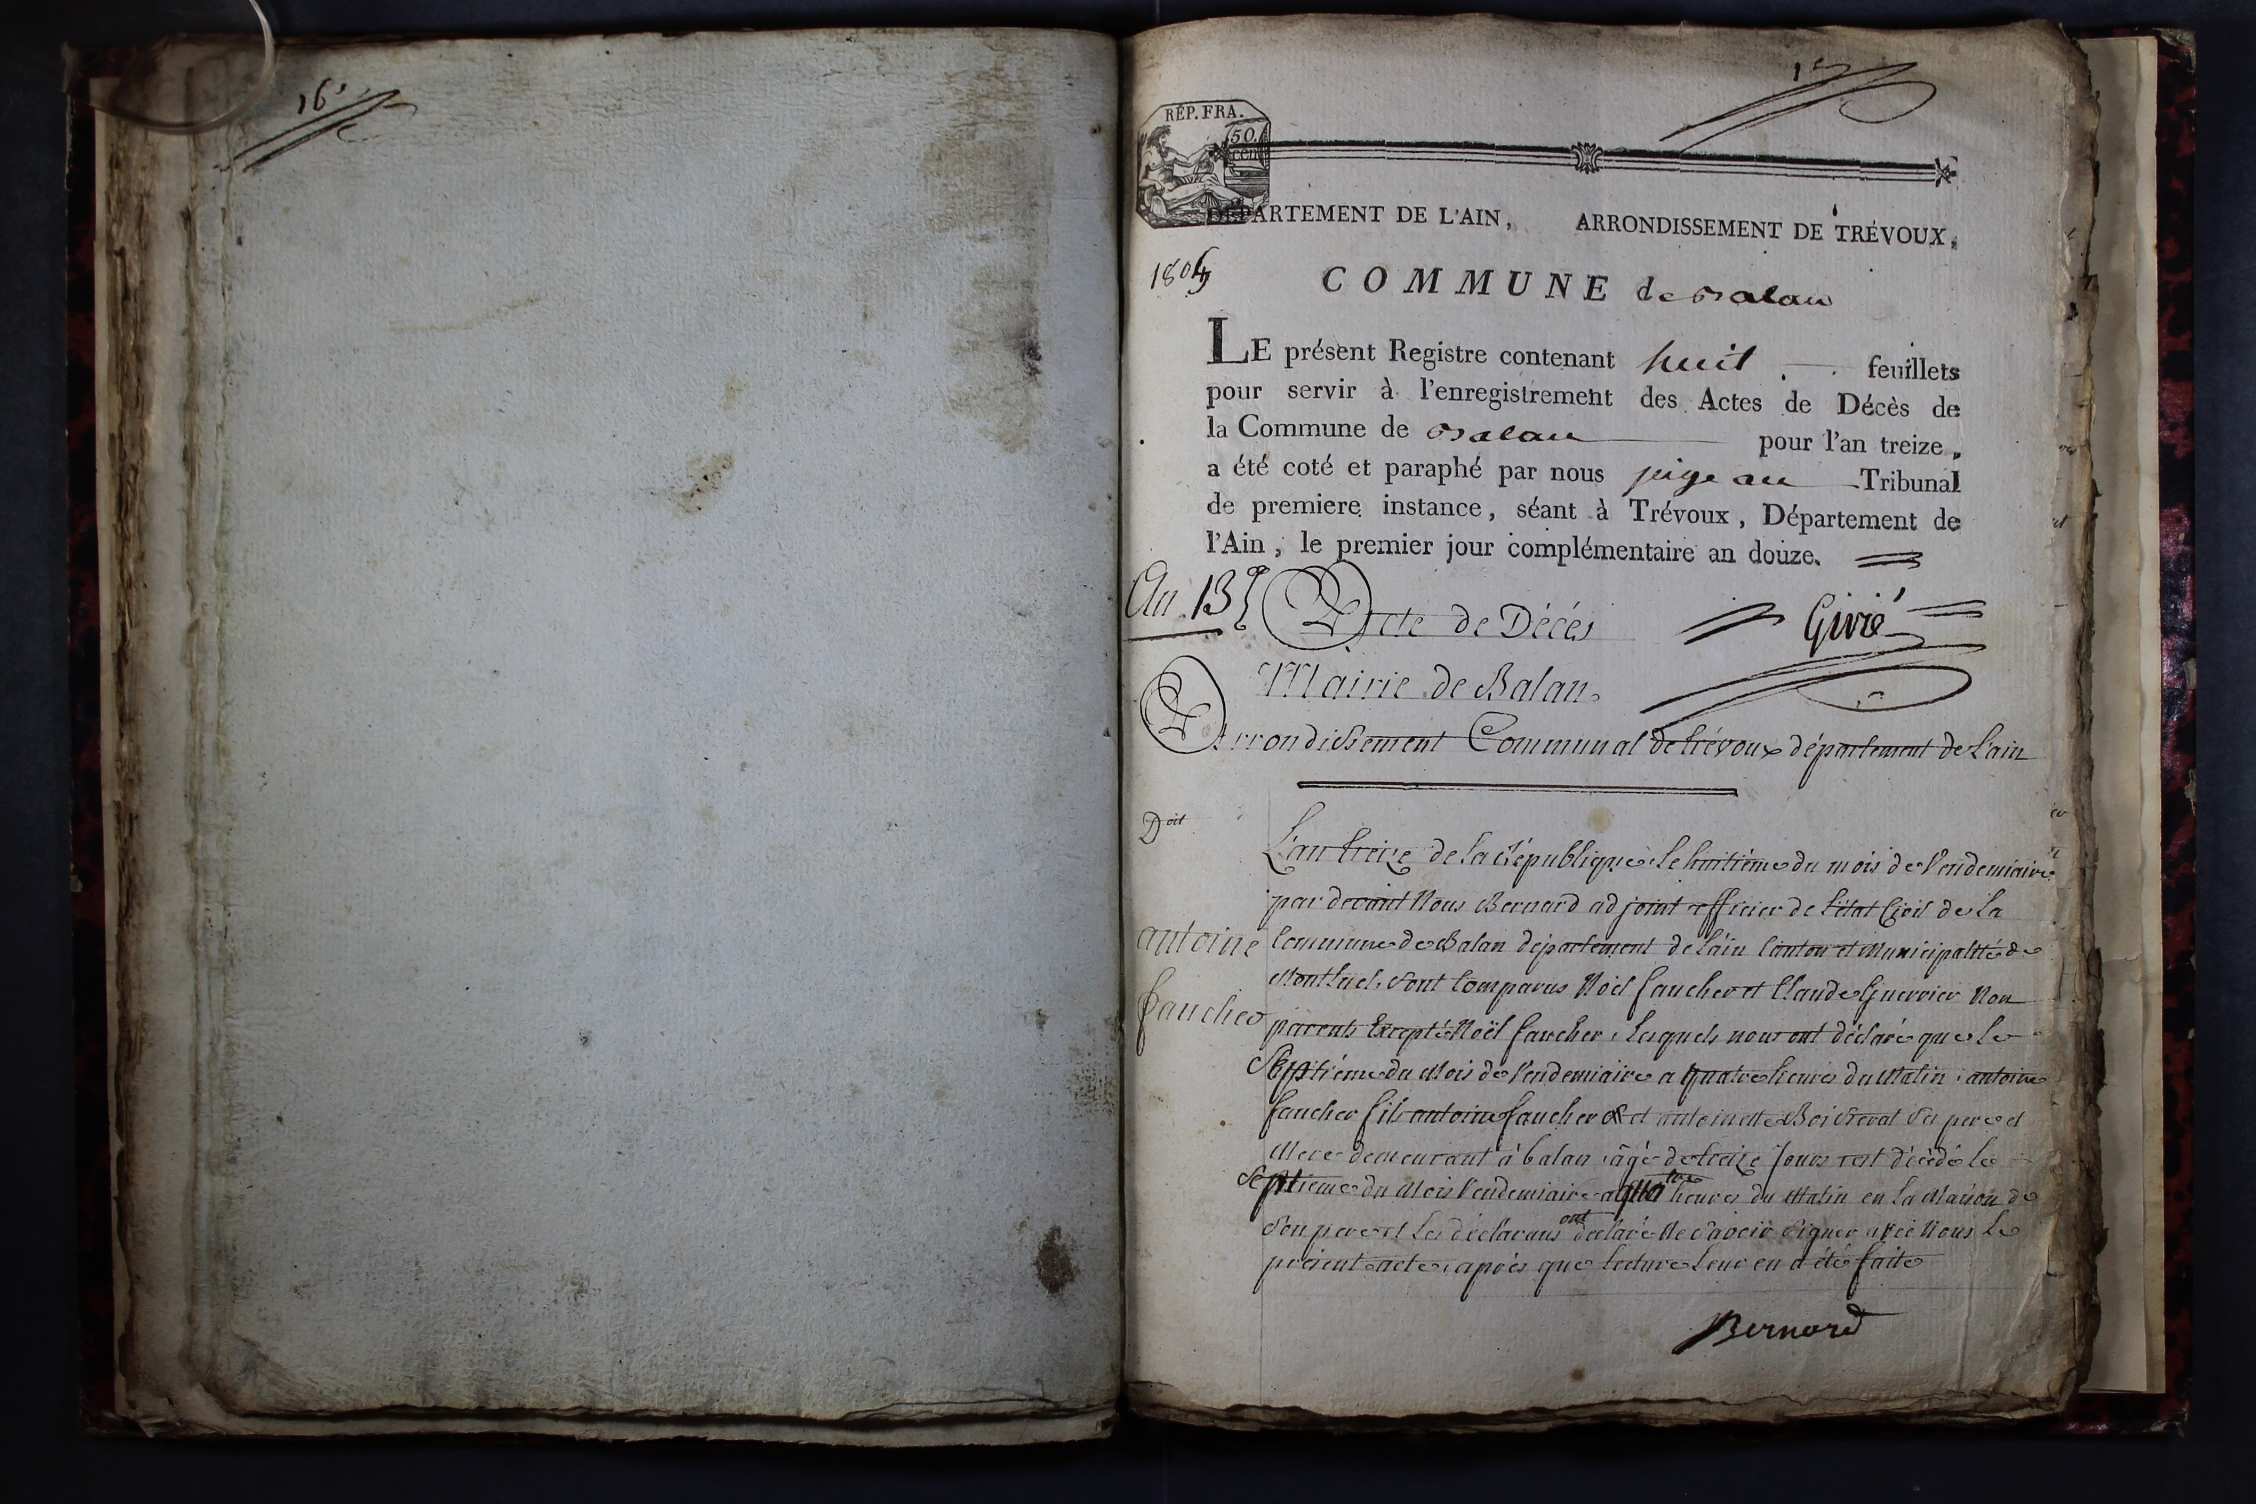 16e
1er
RÉP. FRA.
50
cen
DÉPARTEMENT DE L'AIN, ARRONDISSEMENT DE TRÉVOUX,
1804
COMMUNE de Balan
LE présent Registre contenant huit feuillets
pour servir à l'enregistrement des Actes de Décès de
la Commune de Balan pour l'an treize,
a été coté et paraphé par nous juge au Tribunal
de premiere instance, séant à Trévoux, Département de
l'Ain, le premier jour complémentaire an douze.
An 13
Acte de Décés
Givié
Mairie de Balan
Arrondissement Communal de trévoux département de L'ain
Doit
L'an treize de la République le huitième du mois de Vendemiaire
par devant Nous Bernard adjoint officier de L'état Civil de La
antoine
Commune de Balan département de L'ain Canton et Municipalité de
Montluel, sont Comparus Noël faucher et Claude Guerrier Non
faucher
parents Excepté Noël faucher, Lesquels nous ont déclaré que le
Septiéme du Mois de Vendemiaire a quatre heures du Matin, antoine
faucher fils antoine faucher & et antoinette ses pere et
Mere demeurant à balan, âgé de treize Jours est décédé le
Septieme du Mois Vendemiaire a quatre heures du Matin en La Maison de
Son pere et Les déclarans ont déclaré Ne Savoir Signer avec Nous Le
présent acte, après que Lecture Leur en a été faite
Bernard